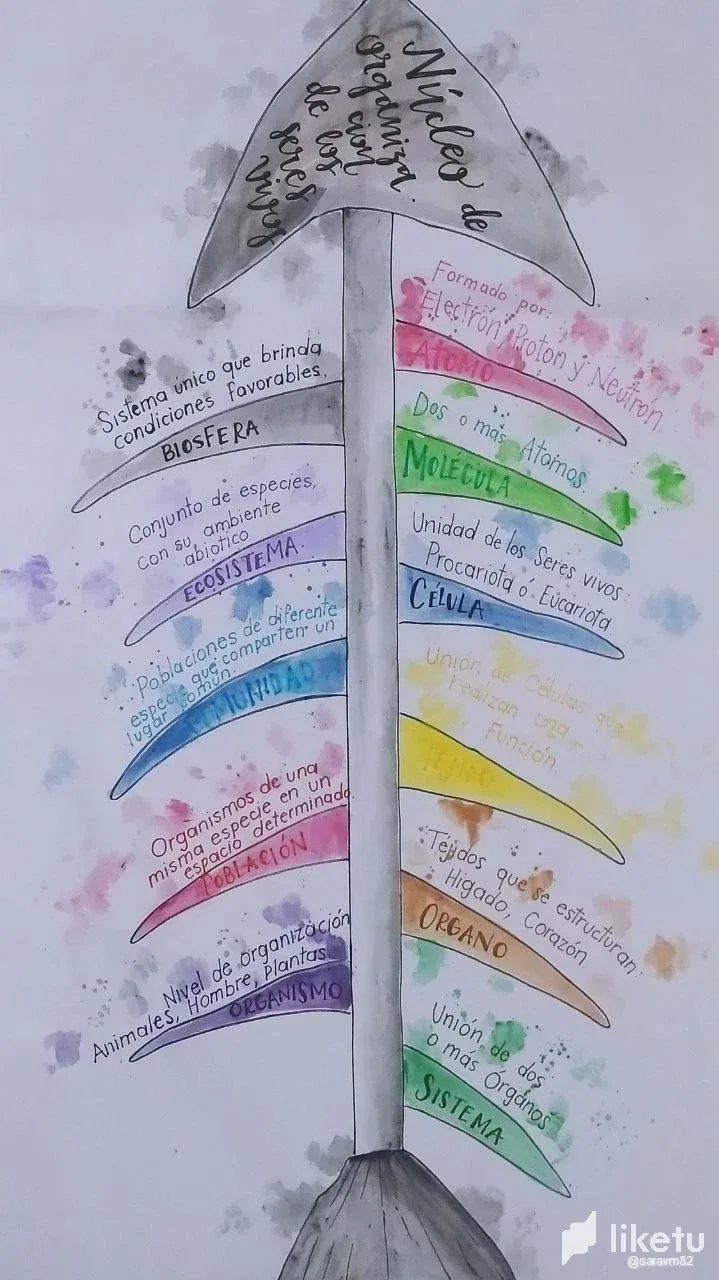 Núcleo de
organiza
ción
de los
seres
vivos
Formado por:
Electrón, Proton y Neutrón.
ATOMO
Dos o más Atomos.
MOLÉCULA
Unidad de los Seres vivos:
Procariota ó Eucariota
CÉLULA
Unión de Células que
realizan una
Función.
TEJIDO
Tejidos que se estructuran:
Higado, Corazón.
ORGANO
Unión de dos
o más Órganos
SISTEMA
Sistema único que brinda
condiciones favorables.
BIOSFERA
Conjunto de especies,
con su ambiente
abiotico
ECOSISTEMA
Poblaciones de diferente
especie que comparten un
lugar común.
COMUNIDAD
Organismos de una
misma especie en un
espacio determinado
POBLACIÓN
Nivel de organización
Animales, Hombre, Plantas
ORGANISMO
liketu
@saravm82